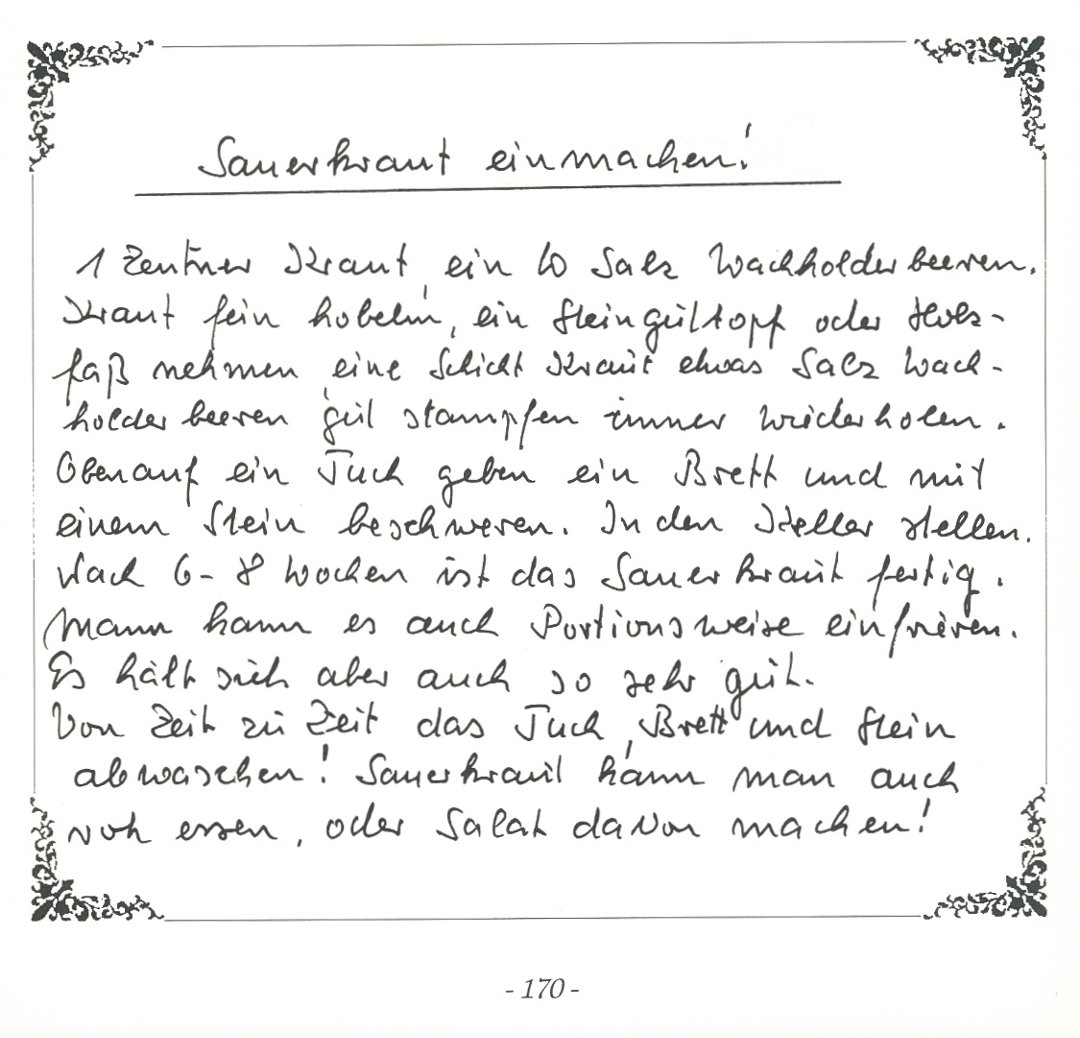 Sauerkraut einmachen!
1 Zentner Kraut, ein Salz Wachholderbeeren.
Kraut fein hobeln, ein Steinguttopf oder Holz-
faß nehmen, eine Schicht Kraut etwas Salz Wach-
holderbeeren gut stampfen immer wiederholen.
Obenauf ein Tuch geben ein Brett und mit
einem Stein beschweren. In den Keller stellen.
Nach 6-8 Wochen ist das Sauerkraut fertig.
Mann kann es auch Portionsweise einfrieren.
Es hält sich aber auch so sehr gut.
Von Zeit zu Zeit das Tuch, Brett und Stein
abwaschen! Sauerkraut kann man auch
roh essen, oder Salat davon machen!
- 170 -